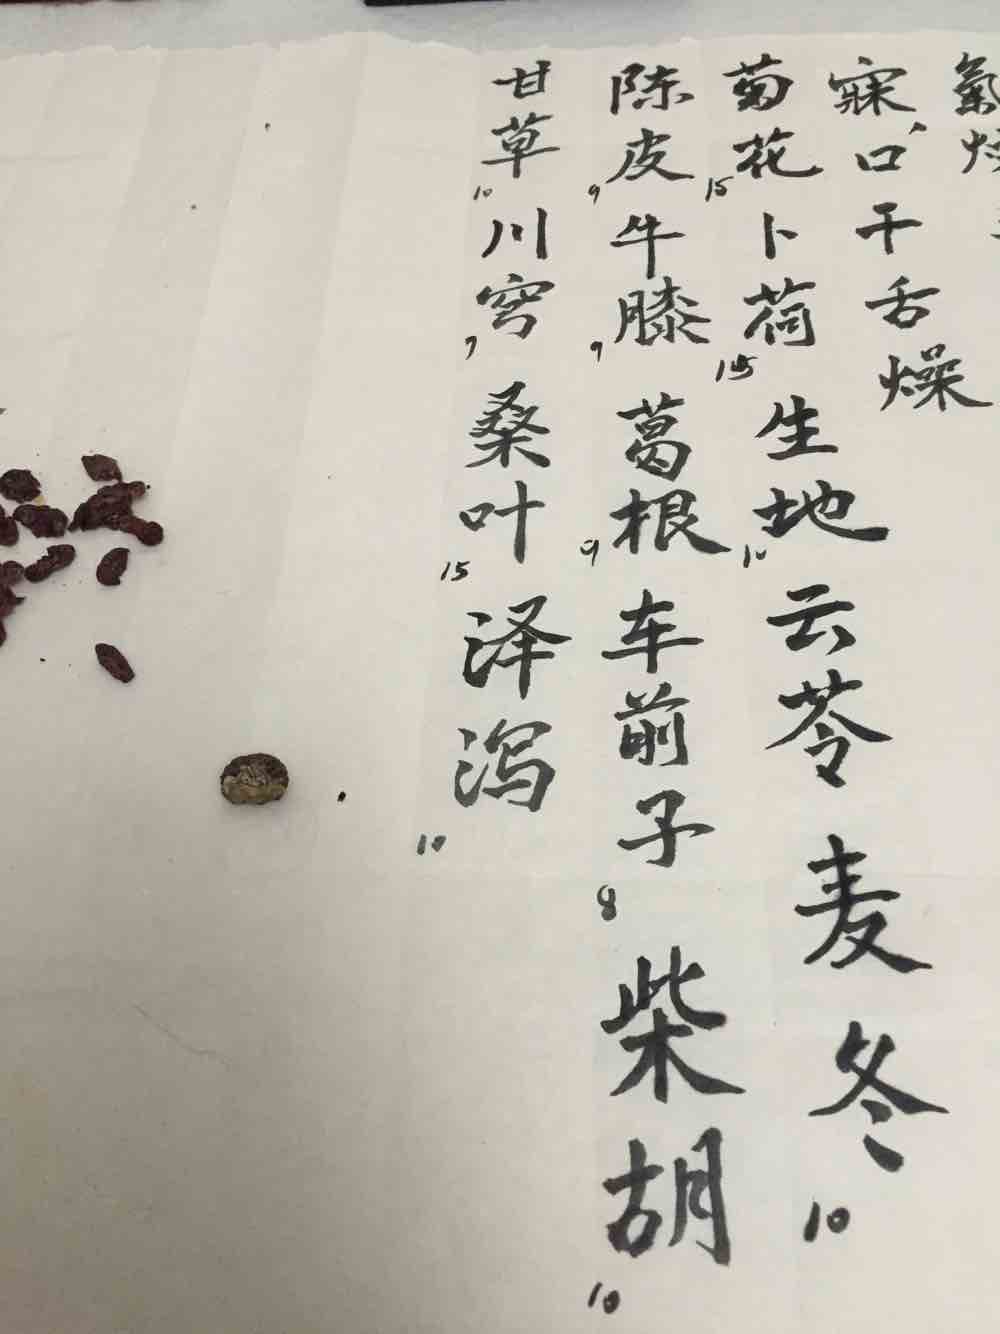 氣
寐、口干舌燥
菊花15卜荷15生地10云苓麦冬10
陈皮9牛膝9葛根9车前子8柴胡10
甘草10川穹7桑叶15泽泻10